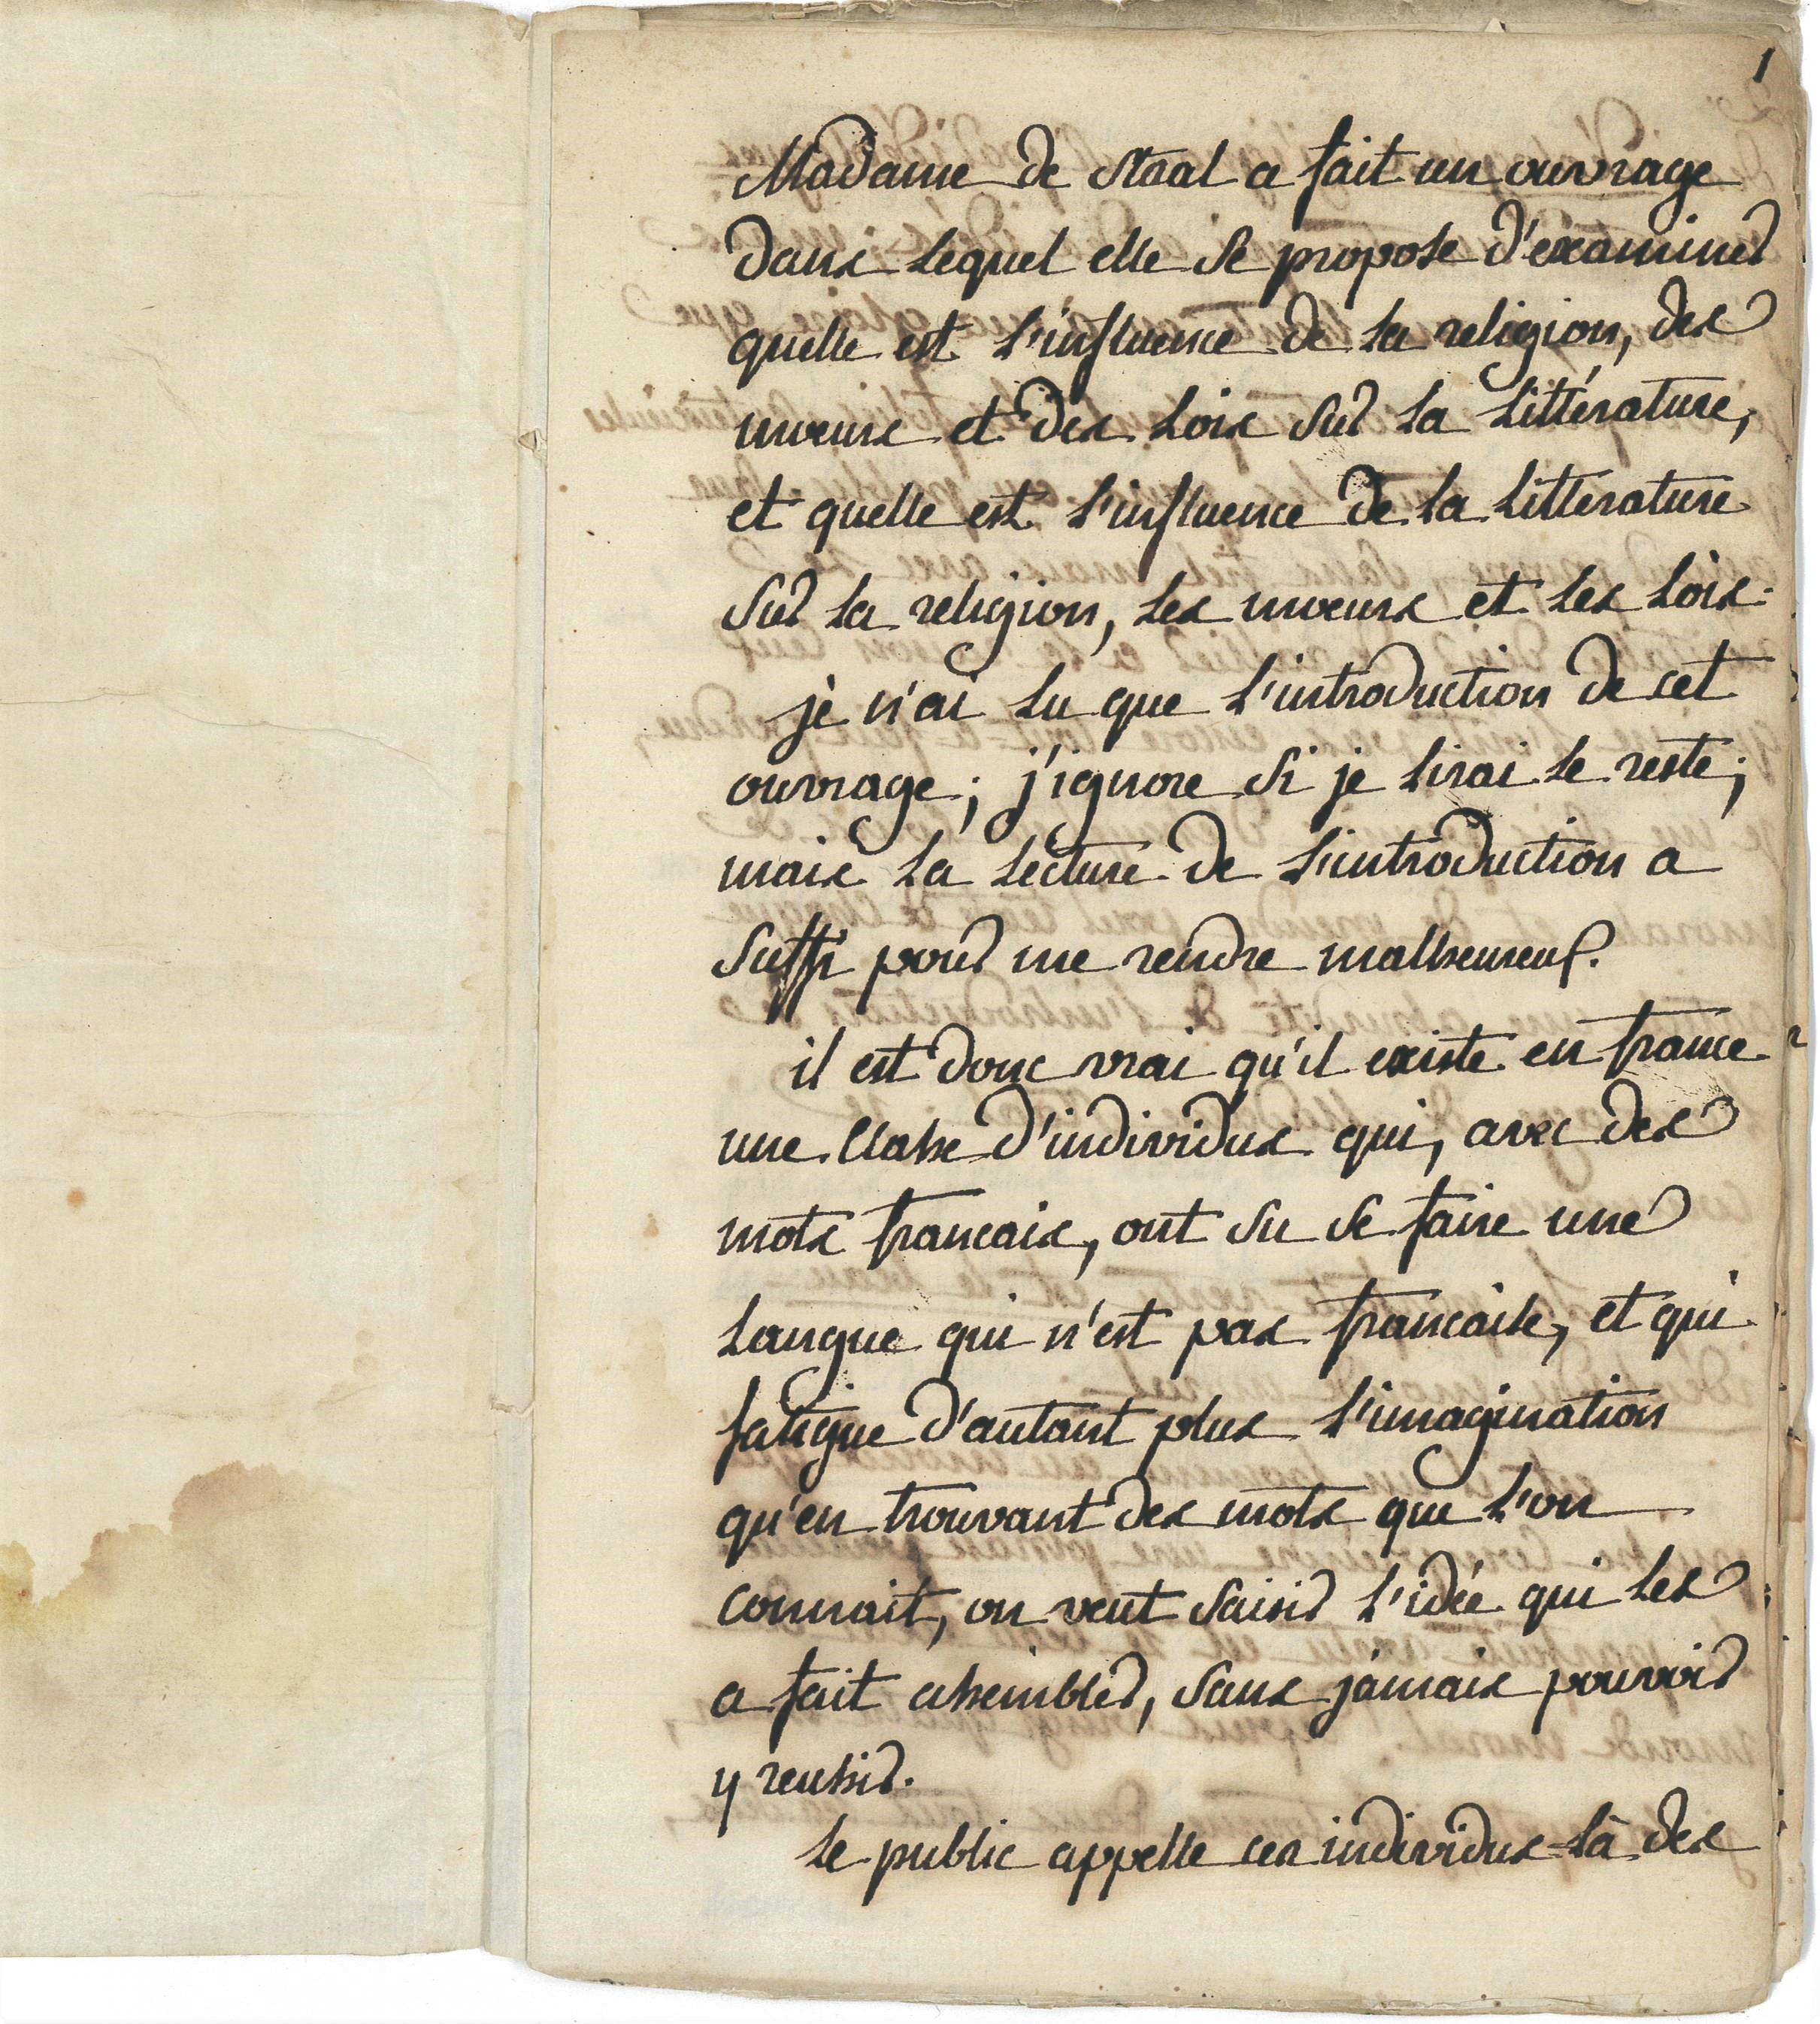 1
Madame de Staal a fait un ouvrage
dans lequel elle se propose d'examiner
quelle est l'influence de la religion, des
mœurs et des lois sur la littérature,
et quelle est l'influence de la littérature
sur la religion, les mœurs et les lois.
je n'ai lu que l'introduction de cet
ouvrage ; j'ignore si je lirai le reste ;
mais la lecture de l'introduction a
suffi pour me rendre malheureux.
il est donc vrai qu'il existe en france
une classe d'individus qui, avec des
mots francais, ont su se faire une
langue qui n'est pas francaise, et qui
fatigue d'autant plus l'imagination
qu'en trouvant des mots que l'on
connait, on veut saisir l'idée qui les
a fait assembler, sans jamais pouvoir
y reussir.
le public appelle ces individus-là des